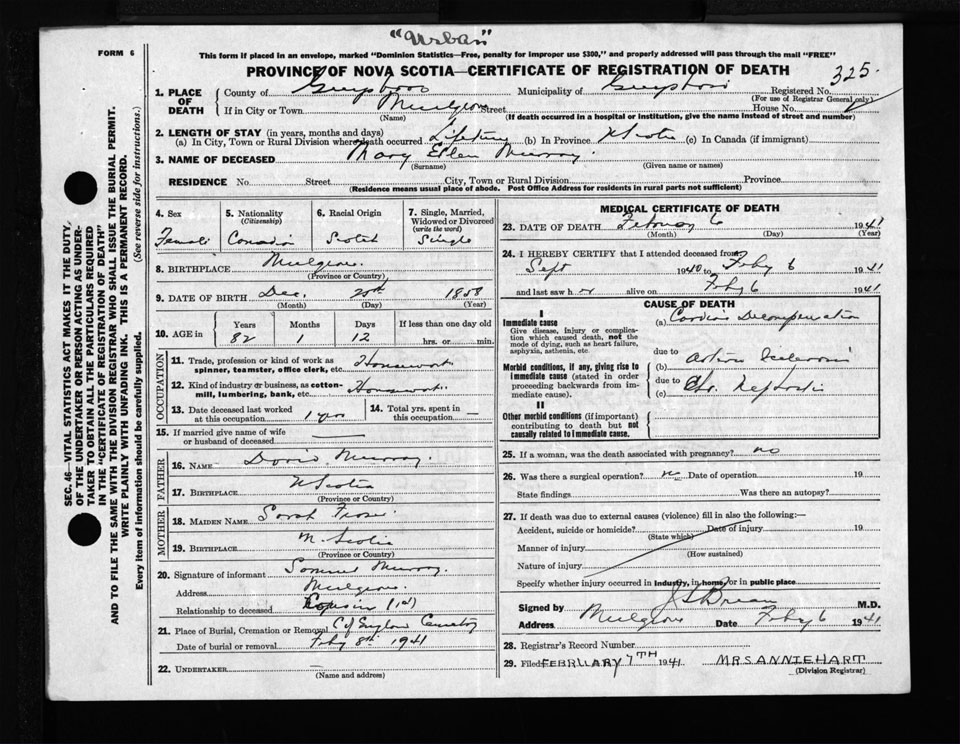 "Urban"
FORM 6
This form if placed in an envelope, marked "Dominion Statistics—Free, penalty for improper use $300," and properly addressed will pass through the mail "FREE"
PROVINCE OF NOVA SCOTIA—CERTIFICATE OF REGISTRATION OF DEATH
325
1. PLACE OF DEATH
County of Guysboro Municipality of Guysboro Registered No.
(For use of Registrar General only)
If in City or Town Mulgrave Street House No.
(Name) (If death occurred in a hospital or institution, give the name instead of street and number)
2. LENGTH OF STAY (in years, months and days)
(a) In City, Town or Rural Division where death occurred Lifetime (b) In Province N Scotia (c) In Canada (if immigrant)
3. NAME OF DECEASED Mary Ellen Murray
(Surname) (Given name or names)
RESIDENCE No. Street City, Town or Rural Division Province
(Residence means usual place of abode. Post Office Address for residents in rural parts not sufficient)
4. Sex
Female
5. Nationality
(Citizenship)
Canada
6. Racial Origin
Scotch
7. Single, Married, Widowed or Divorced
(write the word)
Single
8. BIRTHPLACE Mulgrave
(Province or Country)
9. DATE OF BIRTH Dec. 25th 1858
(Month) (Day) (Year)
10. AGE in
Years Months Days If less than one day old
82 1 12 hrs. or min.
OCCUPATION
11. Trade, profession or kind of work as spinner, teamster, office clerk, etc. Housework
12. Kind of industry or business, as cotton-mill, lumbering, bank, etc. Housework
13. Date deceased last worked at this occupation 1 year
14. Total yrs. spent in this occupation —
15. If married give name of wife or husband of deceased —
FATHER
16. NAME David Murray
17. BIRTHPLACE N Scotia
(Province or Country)
MOTHER
18. MAIDEN NAME Sarah
19. BIRTHPLACE N. Scotia
(Province or Country)
20. Signature of informant Murray
Address Mulgrave
Relationship to deceased Cousin (1st)
21. Place of Burial, Cremation or Removal C of England Cemetery
Date of burial or removal Feby 8th 1941
22. UNDERTAKER
(Name and address)
MEDICAL CERTIFICATE OF DEATH
23. DATE OF DEATH February 6 1941
(Month) (Day) (Year)
24. I HEREBY CERTIFY that I attended deceased from
Sept 1940 to Feby 6 1941
and last saw h er alive on Feby 6 1941
CAUSE OF DEATH
I
Immediate cause
Give disease, injury or complication which caused death, not the mode of dying, such as heart failure, asphyxia, asthenia, etc.
(a) Cardiac Decompensation
due to
Morbid conditions, if any, giving rise to immediate cause (stated in order proceeding backwards from immediate cause).
(b) Arterio Sclerosis
due to
(c) Chr. Nephritis
II
Other morbid conditions (if important) contributing to death but not causally related to immediate cause.
25. If a woman, was the death associated with pregnancy? no
26. Was there a surgical operation? no Date of operation 19
State findings Was there an autopsy?
27. If death was due to external causes (violence) fill in also the following:—
Accident, suicide or homicide? Date of injury 19
(State which)
Manner of injury
(How sustained)
Nature of injury
Specify whether injury occurred in industry, in home, or in public place
Signed by M.D.
Address Mulgrave Date Feby 6 1941
28. Registrar's Record Number
29. Filed FEBRUARY 7TH 1941. MRS ANNIE HART
(Division Registrar)
SEC. 46—VITAL STATISTICS ACT MAKES IT THE DUTY, OF THE UNDERTAKER OR PERSON ACTING AS UNDERTAKER TO OBTAIN ALL THE PARTICULARS REQUIRED IN THE "CERTIFICATE OF REGISTRATION OF DEATH"
AND TO FILE THE SAME WITH THE DIVISION REGISTRAR WHO SHALL ISSUE THE BURIAL PERMIT.
WRITE PLAINLY WITH UNFADING INK. THIS IS A PERMANENT RECORD.
Every item of information should be carefully supplied. (See reverse side for instructions.)